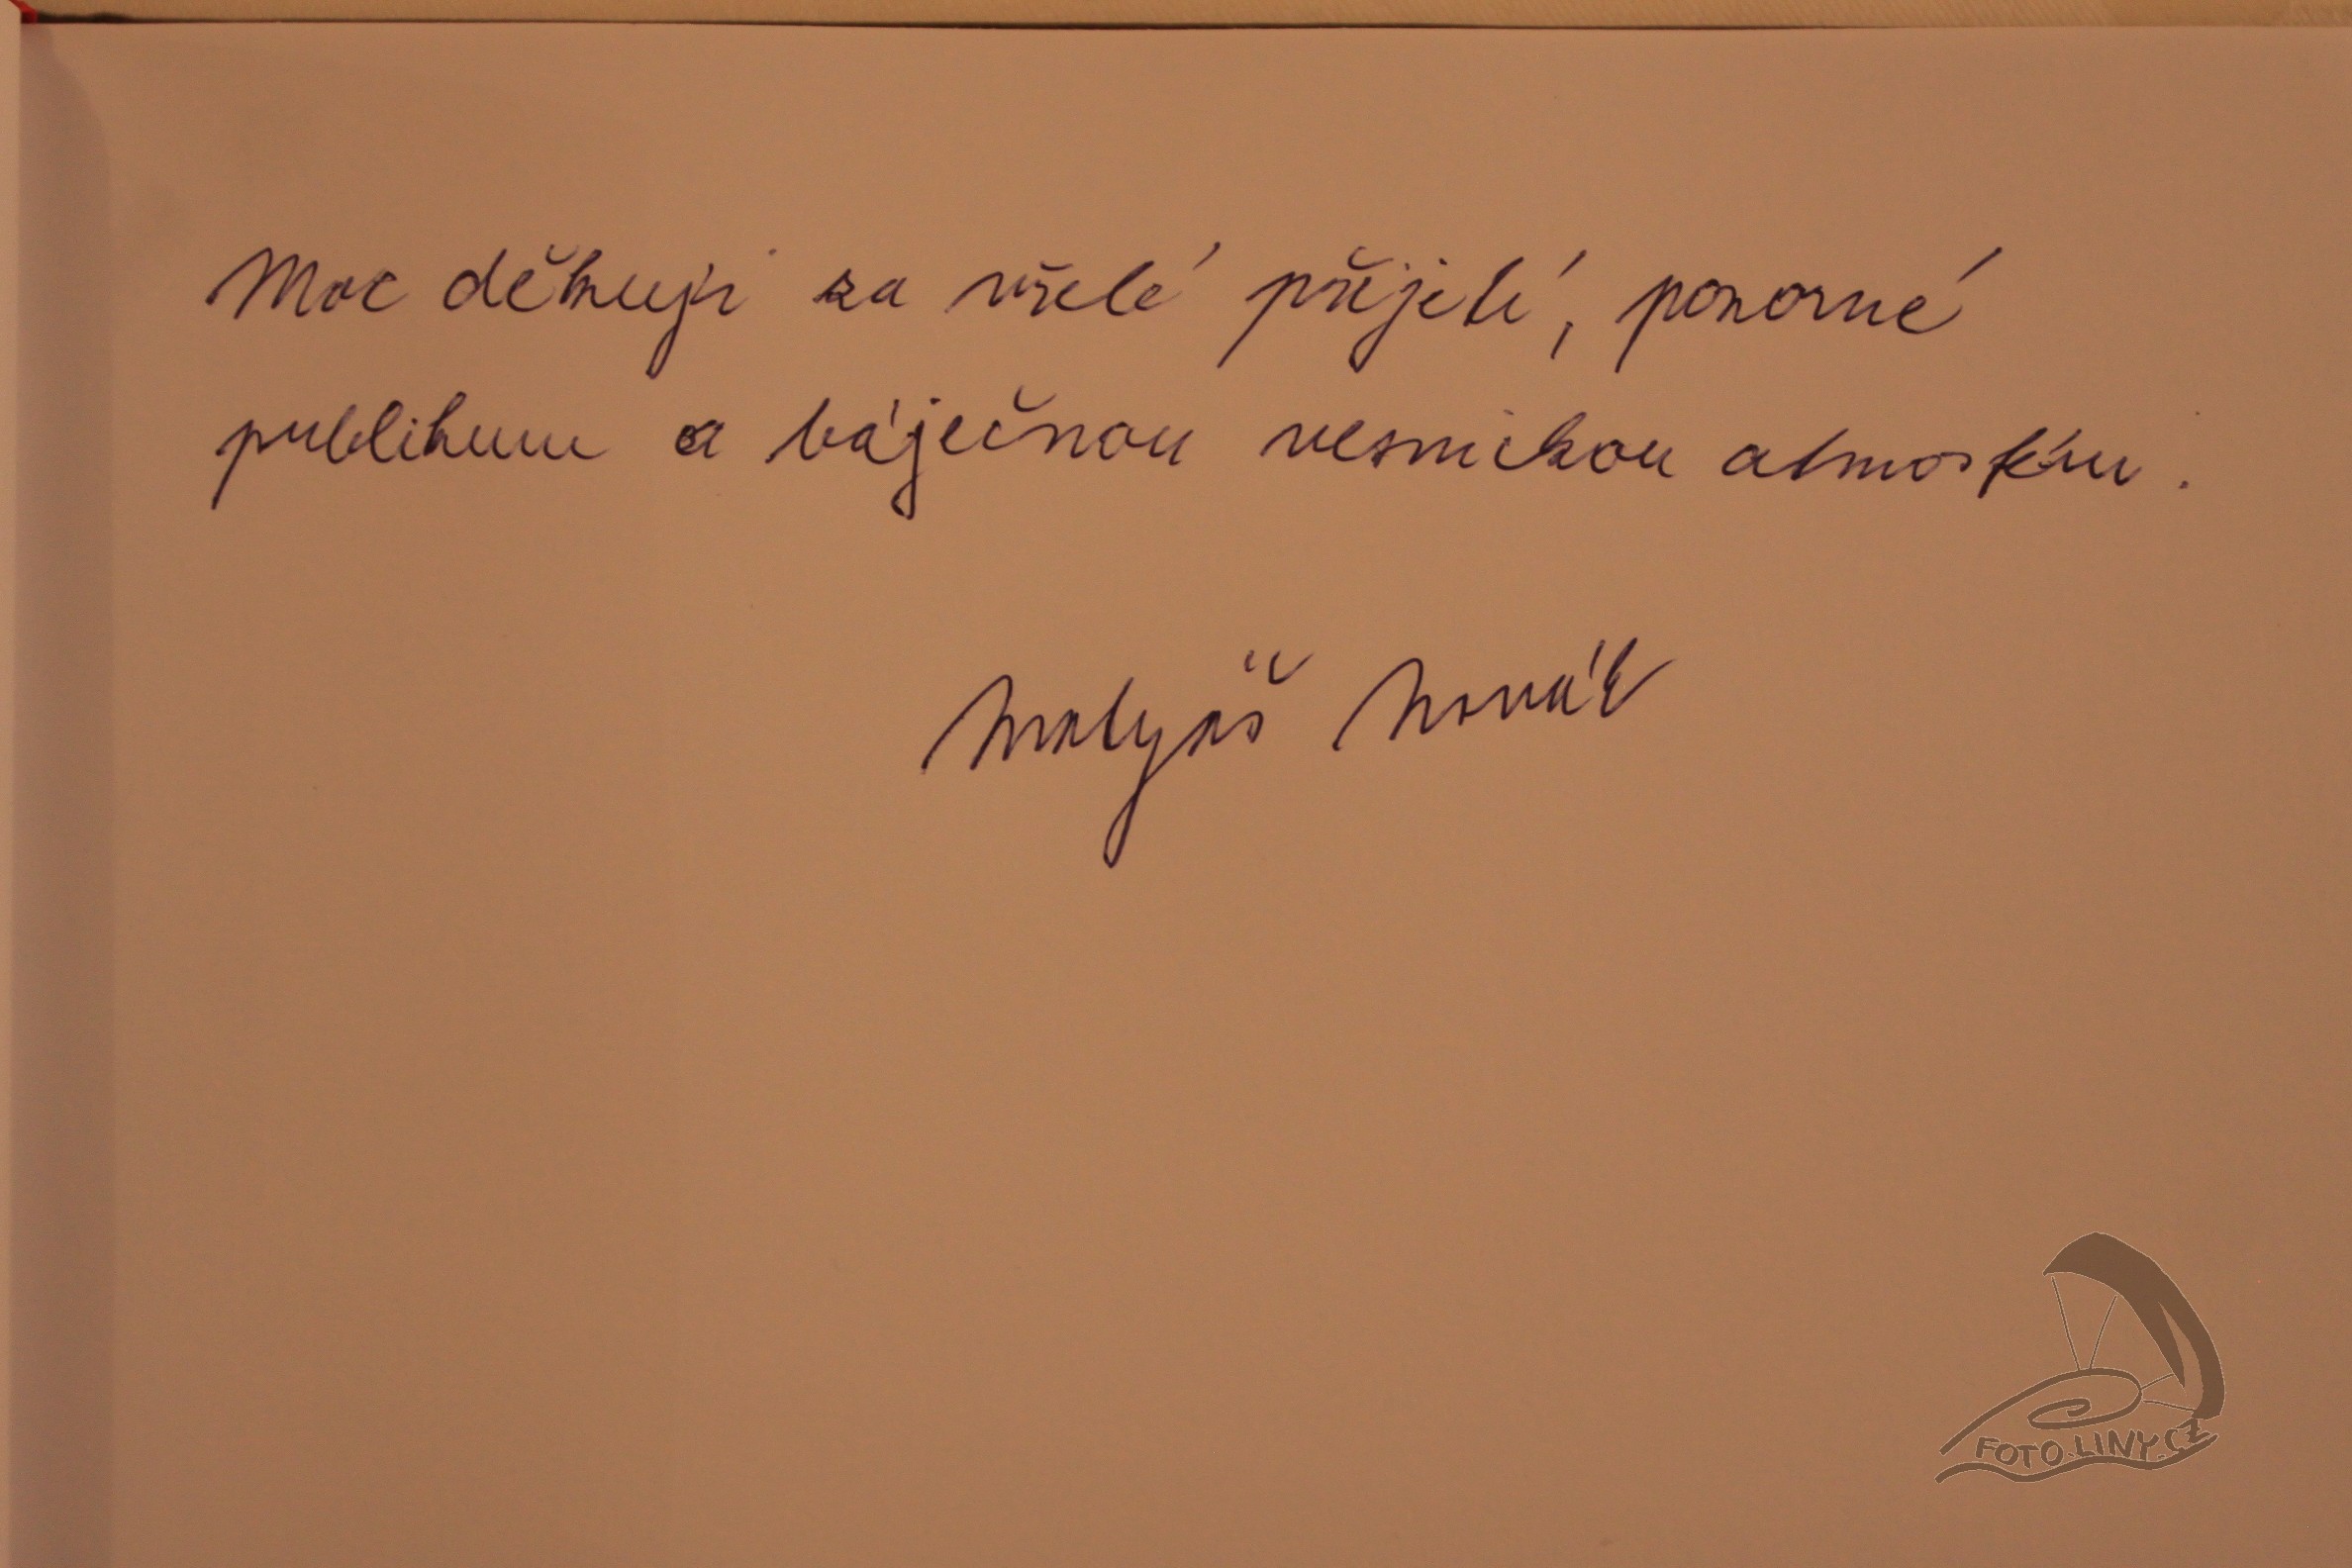 Moc děkuji za vřelé přijetí, pozorné
publikum a báječnou vesnickou atmosféru.
Matyáš Novák
FOTO.LINY.CZ